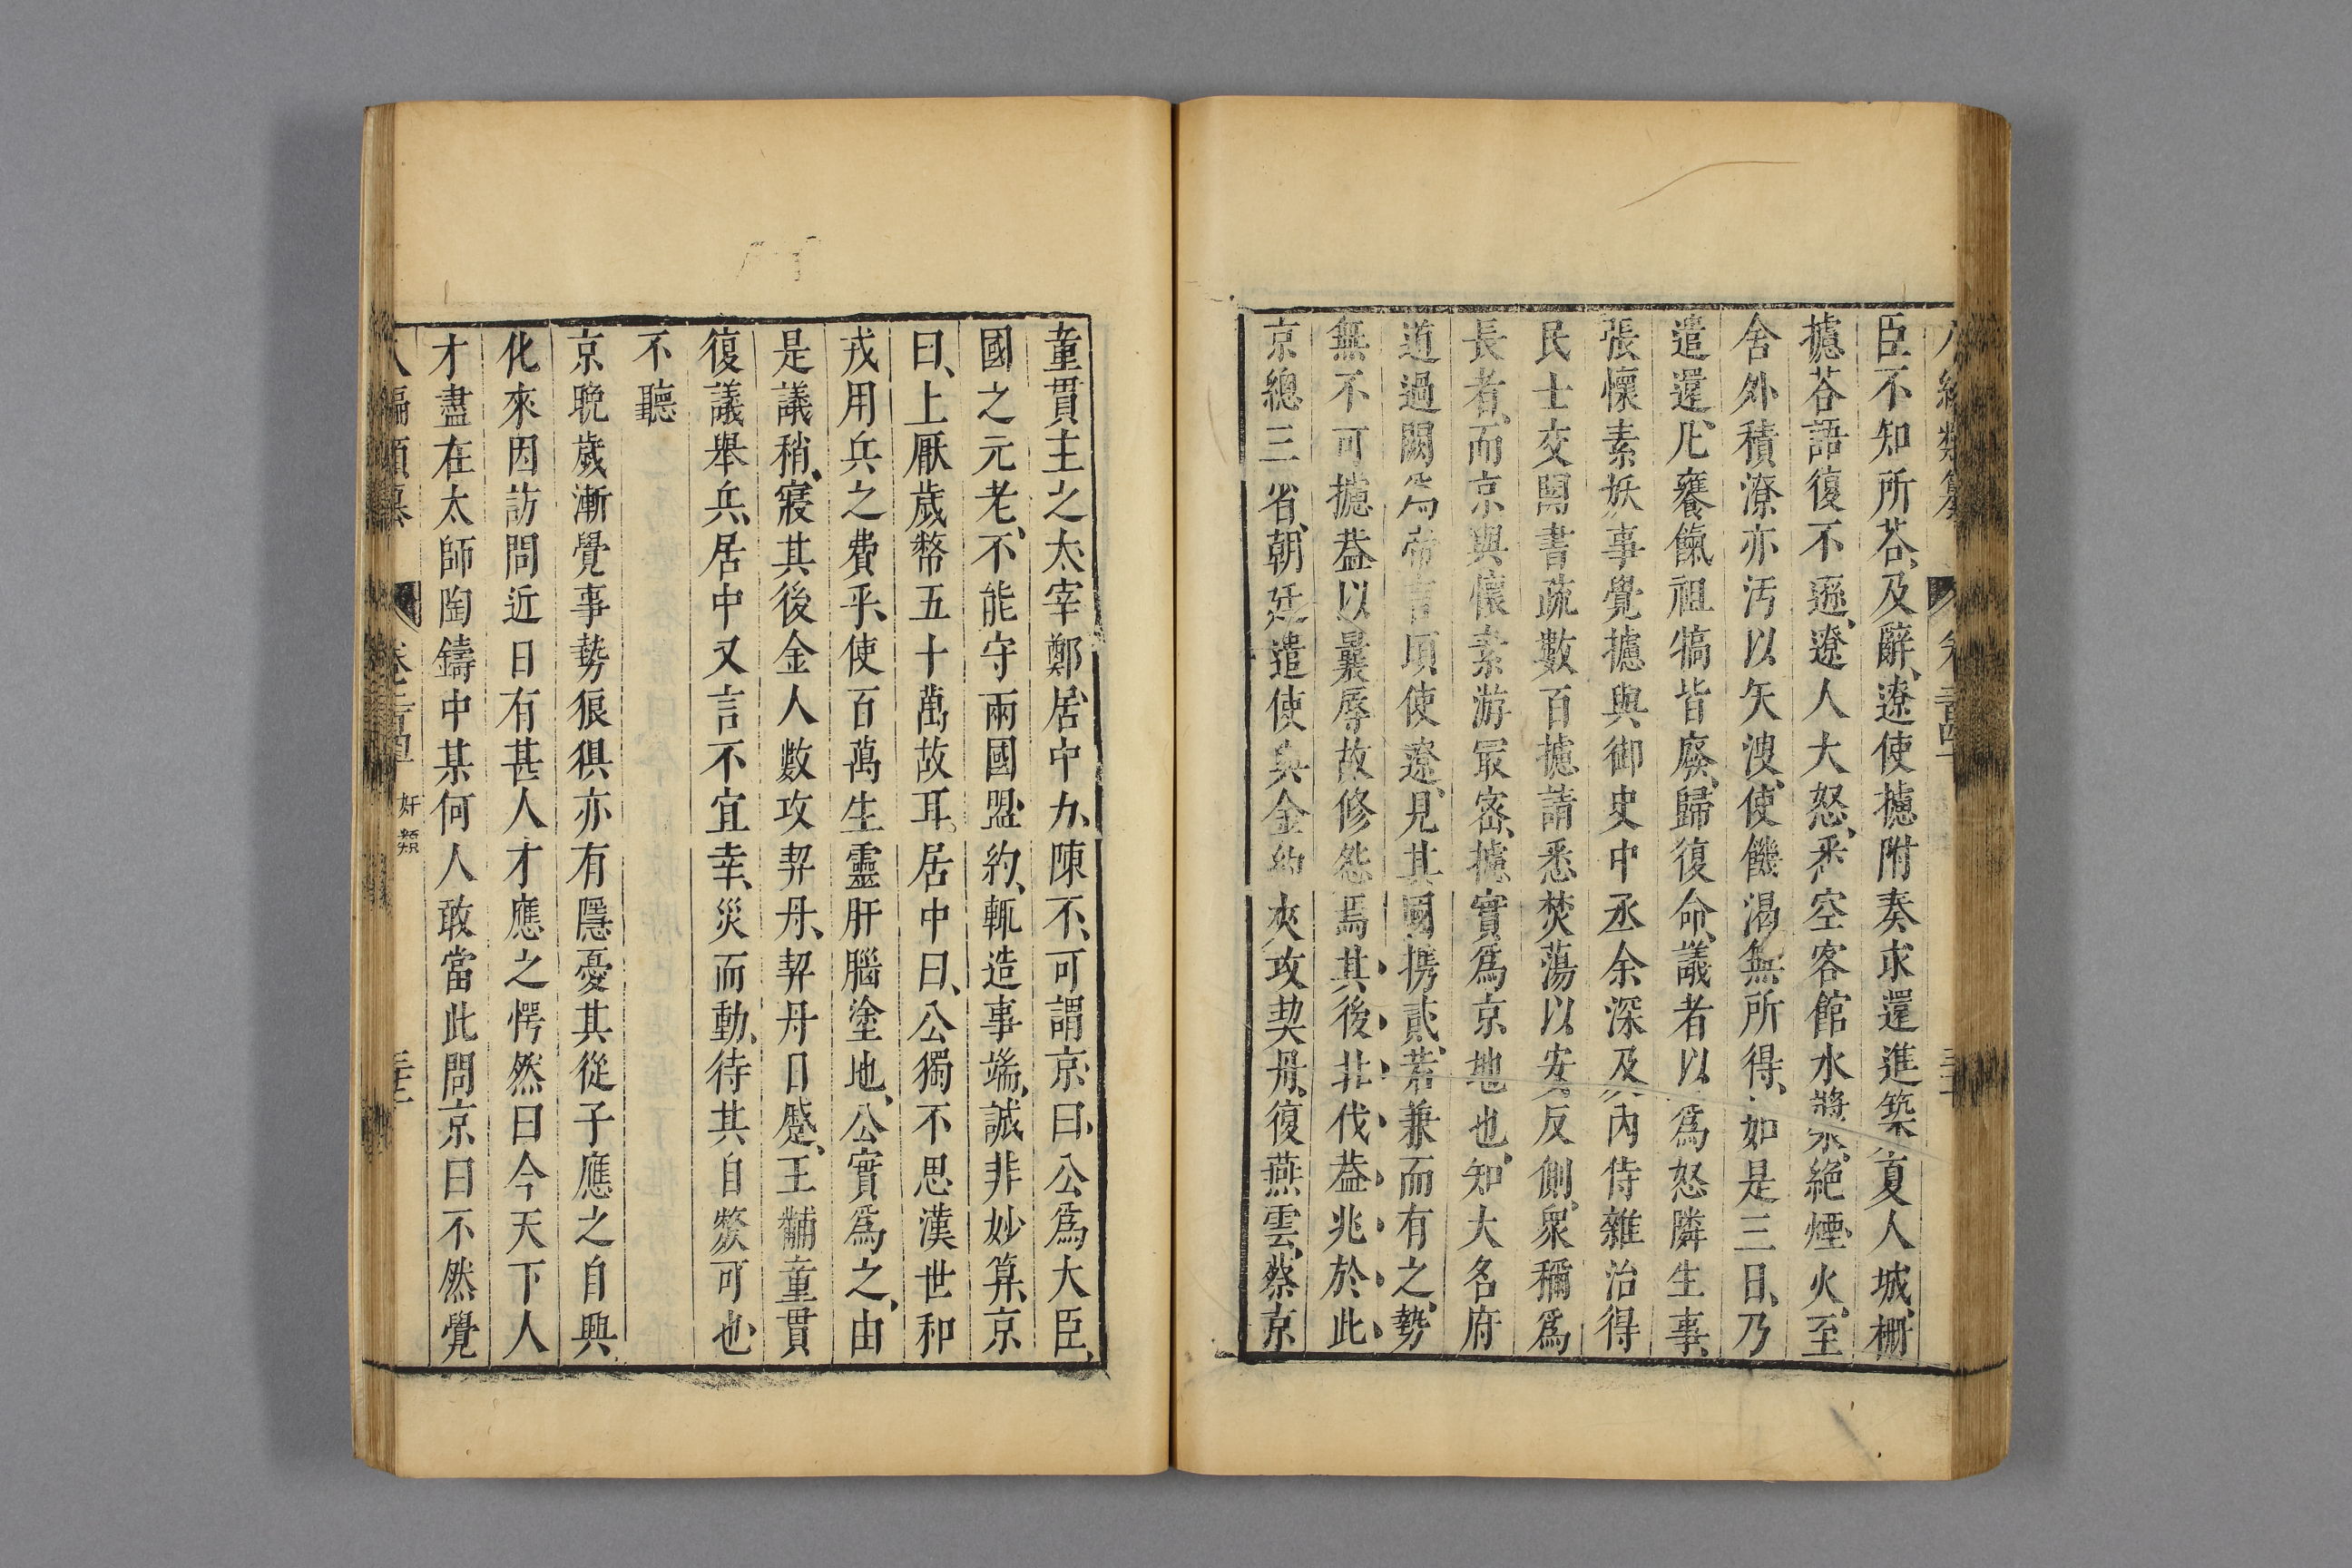 臣不知所荅、及辭、遼使攄附奏求還進築夏人城、柵
攄荅語復不遜、遼人大怒、悉空客館水漿、絶煙火、至
舍外積潦亦汚以矢溲、使饑渴無所得、如是三日、乃
遣還、凡饔餼祖犒皆廢、歸復命、議者以爲怒隣生事、
張懷素妖事覺攄與御史中丞余深及內侍雜治得
民士交關書疏數百攄請悉焚蕩以安反側、衆稱爲
長者、而京與懷素游最密、攄實爲京地也、知大名府
道過闕爲帝言頃使遼、見其國携貳、若兼而有之、勢
無不可攄葢以曩辱故修怨焉其後北伐葢兆於此
京總三省、朝廷遣使與金約夾攻契丹、復燕雲、蔡京
童貫主之太宰鄭居中力陳不可謂京曰、公爲大臣、
國之元老、不能守兩國盟約、輒造事端、誠非妙算、京
曰、上厭歲幣五十萬故耳。居中曰、公獨不思漢世和
戎用兵之費乎、使百萬生靈肝腦塗地、公實爲之、由
是議稍寢其後金人數攻契丹、契丹日蹙、王黼童貫
復議舉兵、居中又言不宜幸災而動、待其自斃可也、
不聽
京晩歲漸覺事勢狼狽亦有隱憂其從子應之自興
化來因訪問近日有甚人才應之愕然曰今天下人
才盡在太師陶鑄中某何人敢當此問京曰不然覺
奸類